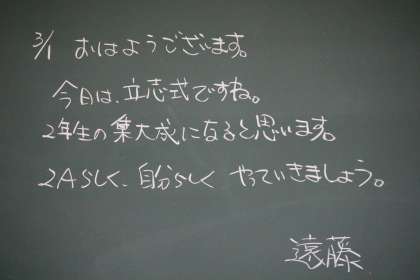 3/1 おはようございます。
今日は、立志式ですね。
2年生の集大成になると思います。
2Aらしく、自分らしく やっていきましょう。
遠藤